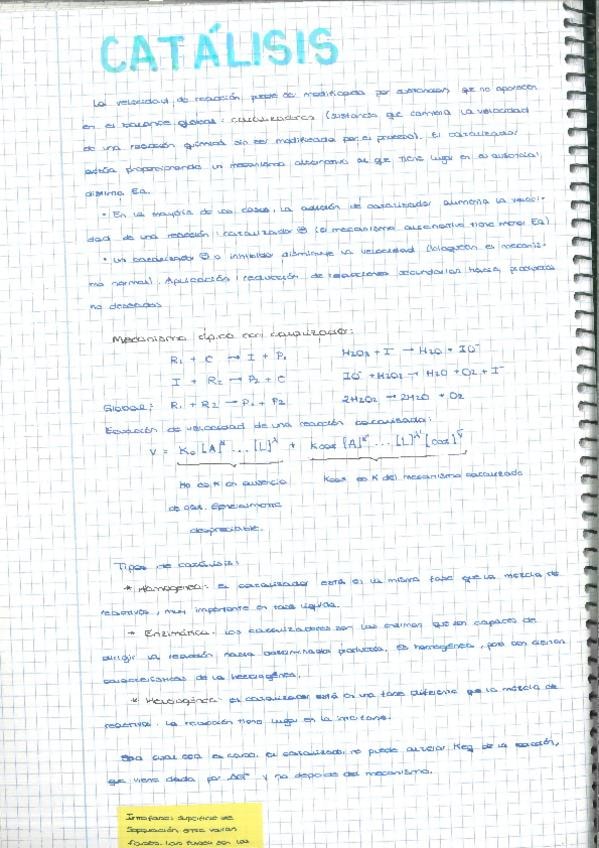 CATÁLISIS
La velocidad de reacción puede ser modificada por sustancias que no aparecen
en el balance global: catalizadores (sustancia que cambia la velocidad
de una reacción química sin ser modificada por el proceso). El catalizador
actúa proporcionando un mecanismo alternativo al que tiene lugar en su ausencia,
distinta Ea.
• En la mayoría de los casos, la adición de catalizador aumenta la veloci-
dad de una reacción: catalizador ⊕ (el mecanismo alternativo tiene menor Ea)
• Un catalizador ⊖ o inhibidor disminuye la velocidad (bloquean el mecanis-
mo normal). Aplicación: reducción de reacciones secundarias hacia productos
no deseados
Mecanismo típico con catalizador:
R₁ + C → I + P₁ H₂O₂ + I⁻ → H₂O + IO⁻
I + R₂ → P₂ + C IO⁻ + H₂O₂ → H₂O + O₂ + I⁻
Global: R₁ + R₂ → P₁ + P₂ 2H₂O₂ → 2H₂O + O₂
Ecuación de velocidad de una reacción catalizada:
V = K₀ [A]ᵅ ... [L]^λ + Kcat [A]ᵅ' ... [L]^λ' [cat]
K₀ es K en ausencia Kcat es K del mecanismo catalizado
de cat. Generalmente
despreciable.
Tipos de catálisis:
* Homogénea: el catalizador está en la misma fase que la mezcla de
reactivos, muy importante en fase líquida.
* Enzimática: los catalizadores son las enzimas que son capaces de
dirigir la reacción hacia determinados productos. Es homogénea, pero con ciertas
características de la heterogénea.
* Heterogénea: el catalizador está en una fase diferente que la mezcla de
reactivos. La reacción tiene lugar en la interfase.
Sea cual sea el caso, el catalizador no puede alterar Keq de la reacción,
que viene dada por ΔG° y no depende del mecanismo.
Interfase: superficie de
separación entre varias
fases. Las fases son las